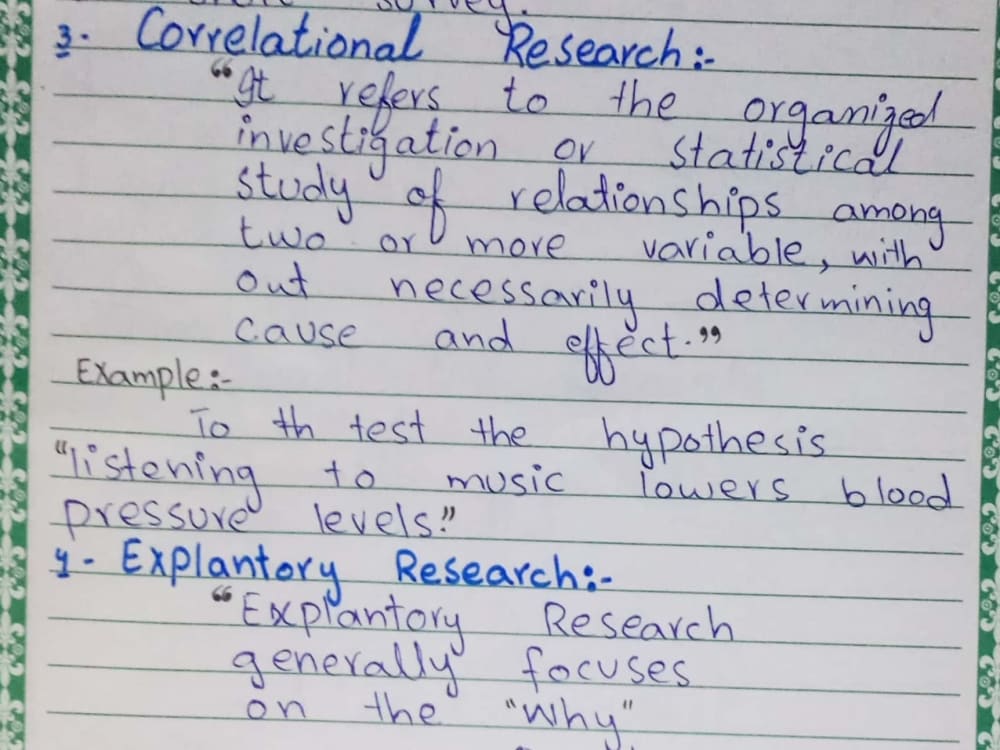 survey.
3. Correlational Research:-
“It refers to the organized
investigation or statistical
study of relationships among
two or more variable, with
out necessarily determining
cause and effect.”
Example:-
To th test the hypothesis
“listening to music lowers blood
pressure levels.”
4- Explantory Research:-
“Explantory Research
generally focuses
on the "Why"